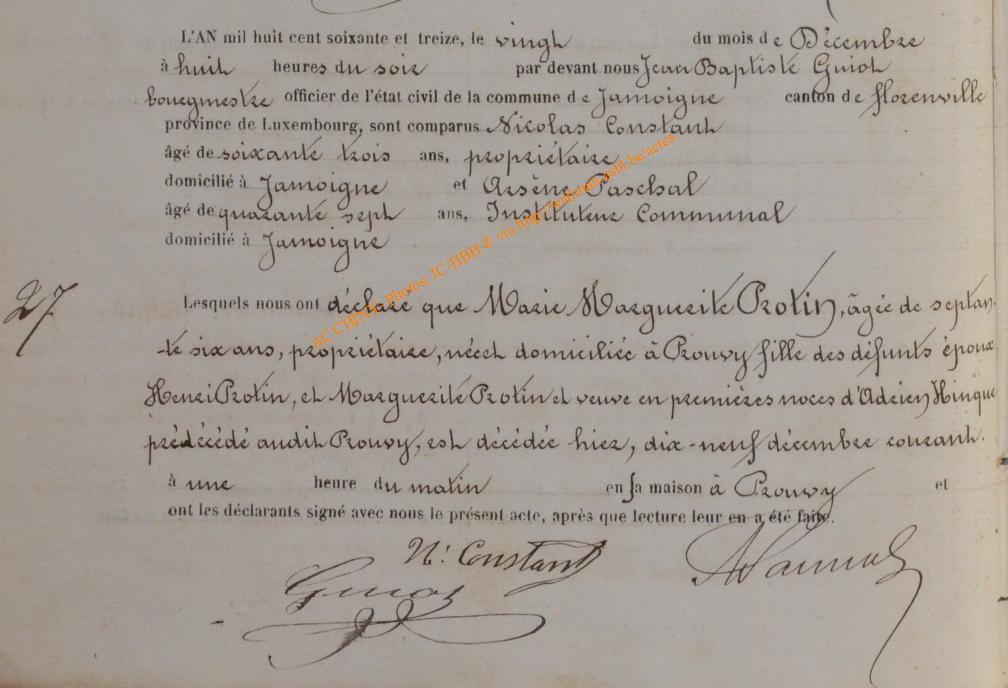 L'AN mil huit cent soixante et treize, le vingt du mois de Décembre
à huit heures du soir par devant nous Jean Baptiste Guiot
bourgmestre officier de l'état civil de la commune de Jamoigne canton de florenville
province de Luxembourg, sont comparus Nicolas Constant
âgé de soixante trois ans, propriétaire
domicilié à Jamoigne et Arsène Paschal
âgé de quarante sept ans, Instituteur Communal
domicilié à Jamoigne
27
Lesquels nous ont déclaré que Marie Marguerite Protin, âgée de septan-
-te six ans, propriétaire, née et domiciliée à Prouvy fille des défunts époux
Henri Protin, et Marguerite Protin et veuve en premières noces d'Adrien Hinque
prédécédé audit Prouvy, est décédée hier, dix-neuf décembre courant.
à une heure du matin en sa maison à Prouvy et
ont les déclarants signé avec nous le présent acte, après que lecture leur en a été faite.
N. Constant
Guiot
AC CHINY Photos: IC/HBH ©